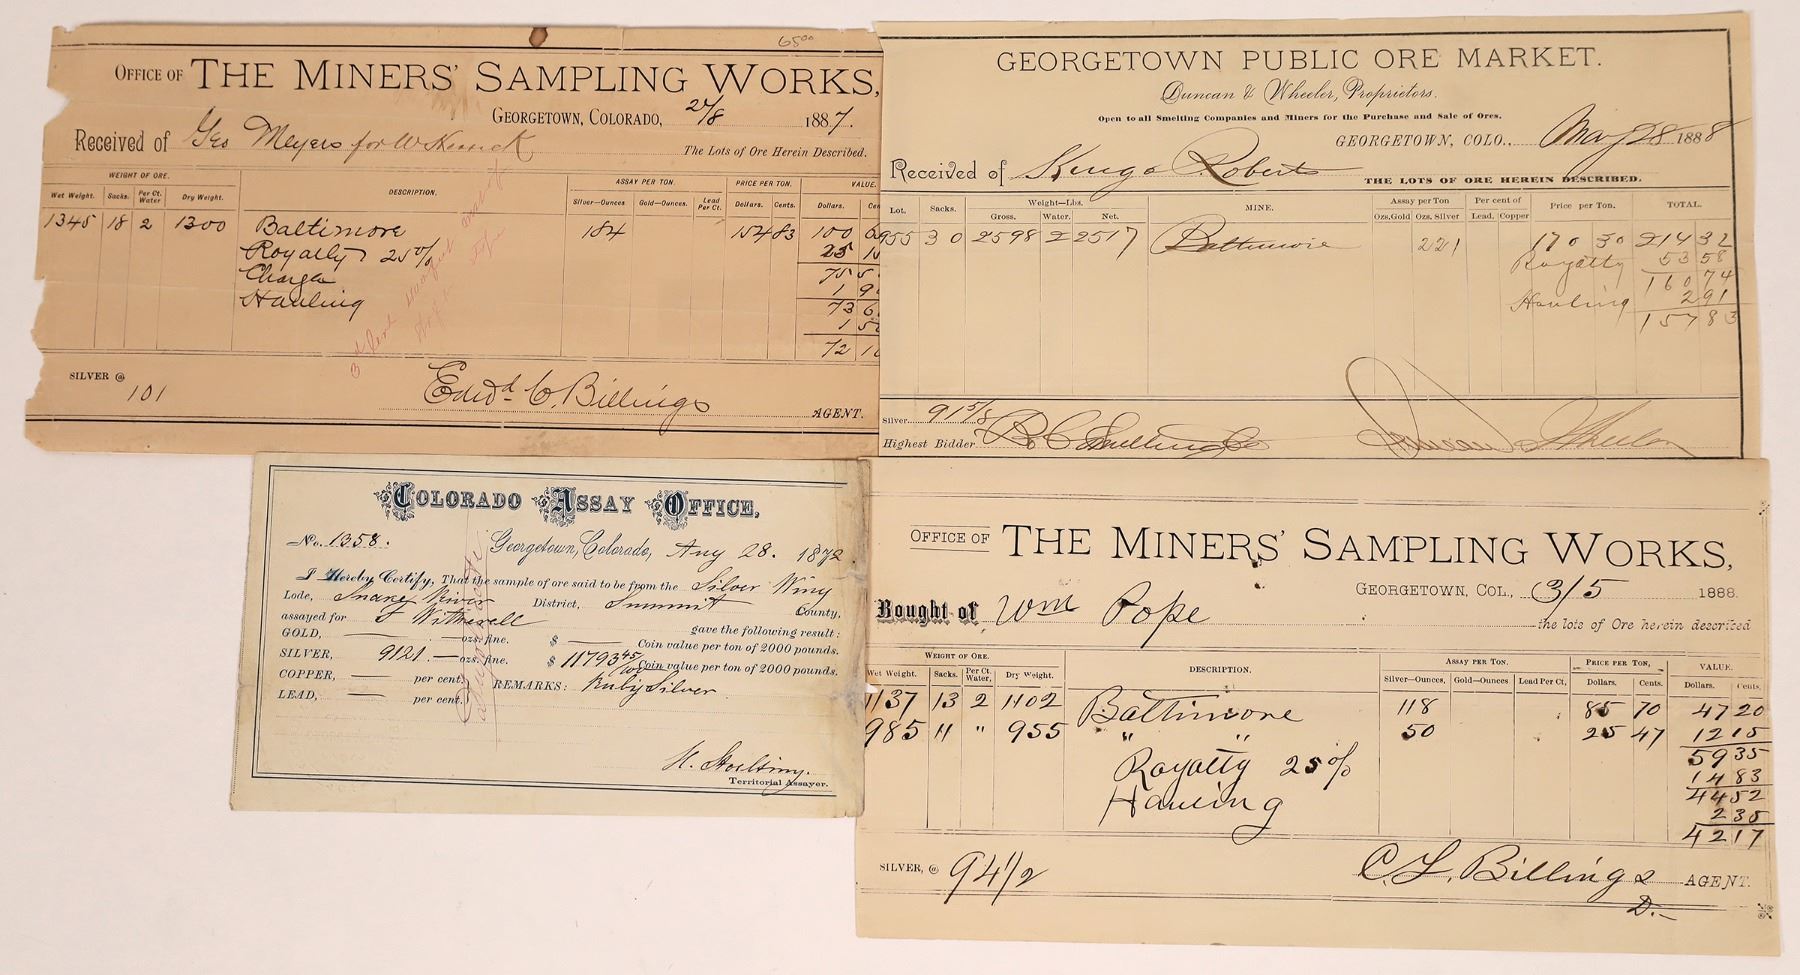 65 00
OFFICE OF THE MINERS' SAMPLING WORKS,
GEORGETOWN, COLORADO, 27/8 1887.
Received of Geo Meyers for W The Lots of Ore Herein Described.
WEIGHT OF ORE. DESCRIPTION. ASSAY PER TON. PRICE PER TON. VALUE.
Wet Weight. Sacks. Per Ct. Water Dry Weight. Silver—Ounces. Gold—Ounces. Lead Per Ct. Dollars. Cents. Dollars. Cen
1345 18 2 1300 Baltimore 184 154 83 100 6
Royalty 25% 25 1
Charge 75 5
1 9
Hauling 73 6
1 50
72 1
SILVER @ 101
Edwd C. Billings AGENT.
GEORGETOWN PUBLIC ORE MARKET.
Duncan & Wheeler, Proprietors.
Open to all Smelting Companies and Miners for the Purchase and Sale of Ores.
GEORGETOWN, COLO., May 28 1888
Received of Roberts THE LOTS OF ORE HEREIN DESCRIBED.
Lot. Sacks. Weight—Lbs. MINE. Assay per Ton Per cent of Price per Ton. TOTAL.
Gross. Water. Net. Ozs.Gold Ozs. Silver Lead. Copper
955 30 2598 2 2517 Baltimore 221 170 30 214 32
Royalty 53 58
160 74
Hauling 2 91
157 83
Silver 91 5/8
Highest Bidder Duncan & Wheeler
COLORADO ASSAY OFFICE,
No. 1358. Georgetown, Colorado, Aug 28. 1872
I Hereby Certify, That the sample of ore said to be from the Silver Wing
Lode, Snake River District, Summit County,
assayed for F Witherell gave the following result:
GOLD, — ozs. fine. $ — Coin value per ton of 2000 pounds.
SILVER, 9121. — ozs. fine. $ 11793 45/100 Coin value per ton of 2000 pounds.
COPPER, — per cent. REMARKS: Ruby Silver
LEAD, — per cent.
H. Stoelting.
Territorial Assayer.
OFFICE OF THE MINERS' SAMPLING WORKS,
GEORGETOWN, COL., 3/5 1888.
Bought of Wm Pope the lots of Ore herein described
WEIGHT OF ORE. DESCRIPTION. ASSAY PER TON. PRICE PER TON, VALUE.
Wet Weight. Sacks. Per Ct. Water, Dry Weight. Silver—Ounces, Gold—Ounces Lead Per Ct, Dollars. Cents. Dollars. Cents.
1137 13 2 1102 Baltimore 118 85 70 47 20
985 11 " 955 " " 50 25 47 12 15
59 35
Royalty 25% 14 83
44 52
Hauling 2 35
42 17
SILVER, @ 94 1/2
C. L. Billings AGENT.
D.—